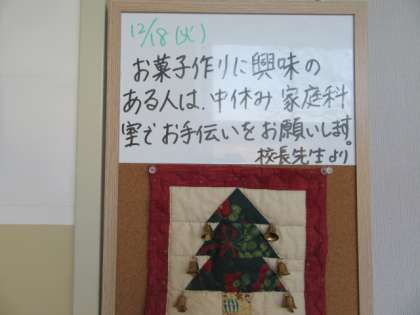 12/18(火)
お菓子作りに興味の
ある人は、中休み 家庭科
室でお手伝いをお願いします。
校長先生より